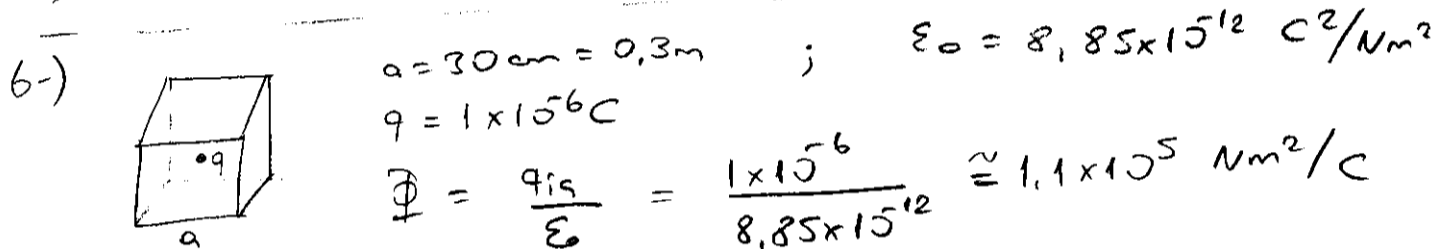 6-) a = 30 cm = 0,3m ; ε₀ = 8,85x10⁻¹² C²/Nm²
q = 1 x 10⁻⁶ C
•q
Φ = qiç / ε₀ = 1x10⁻⁶ / 8,85x10⁻¹² ≅ 1,1x10⁵ Nm²/C
a